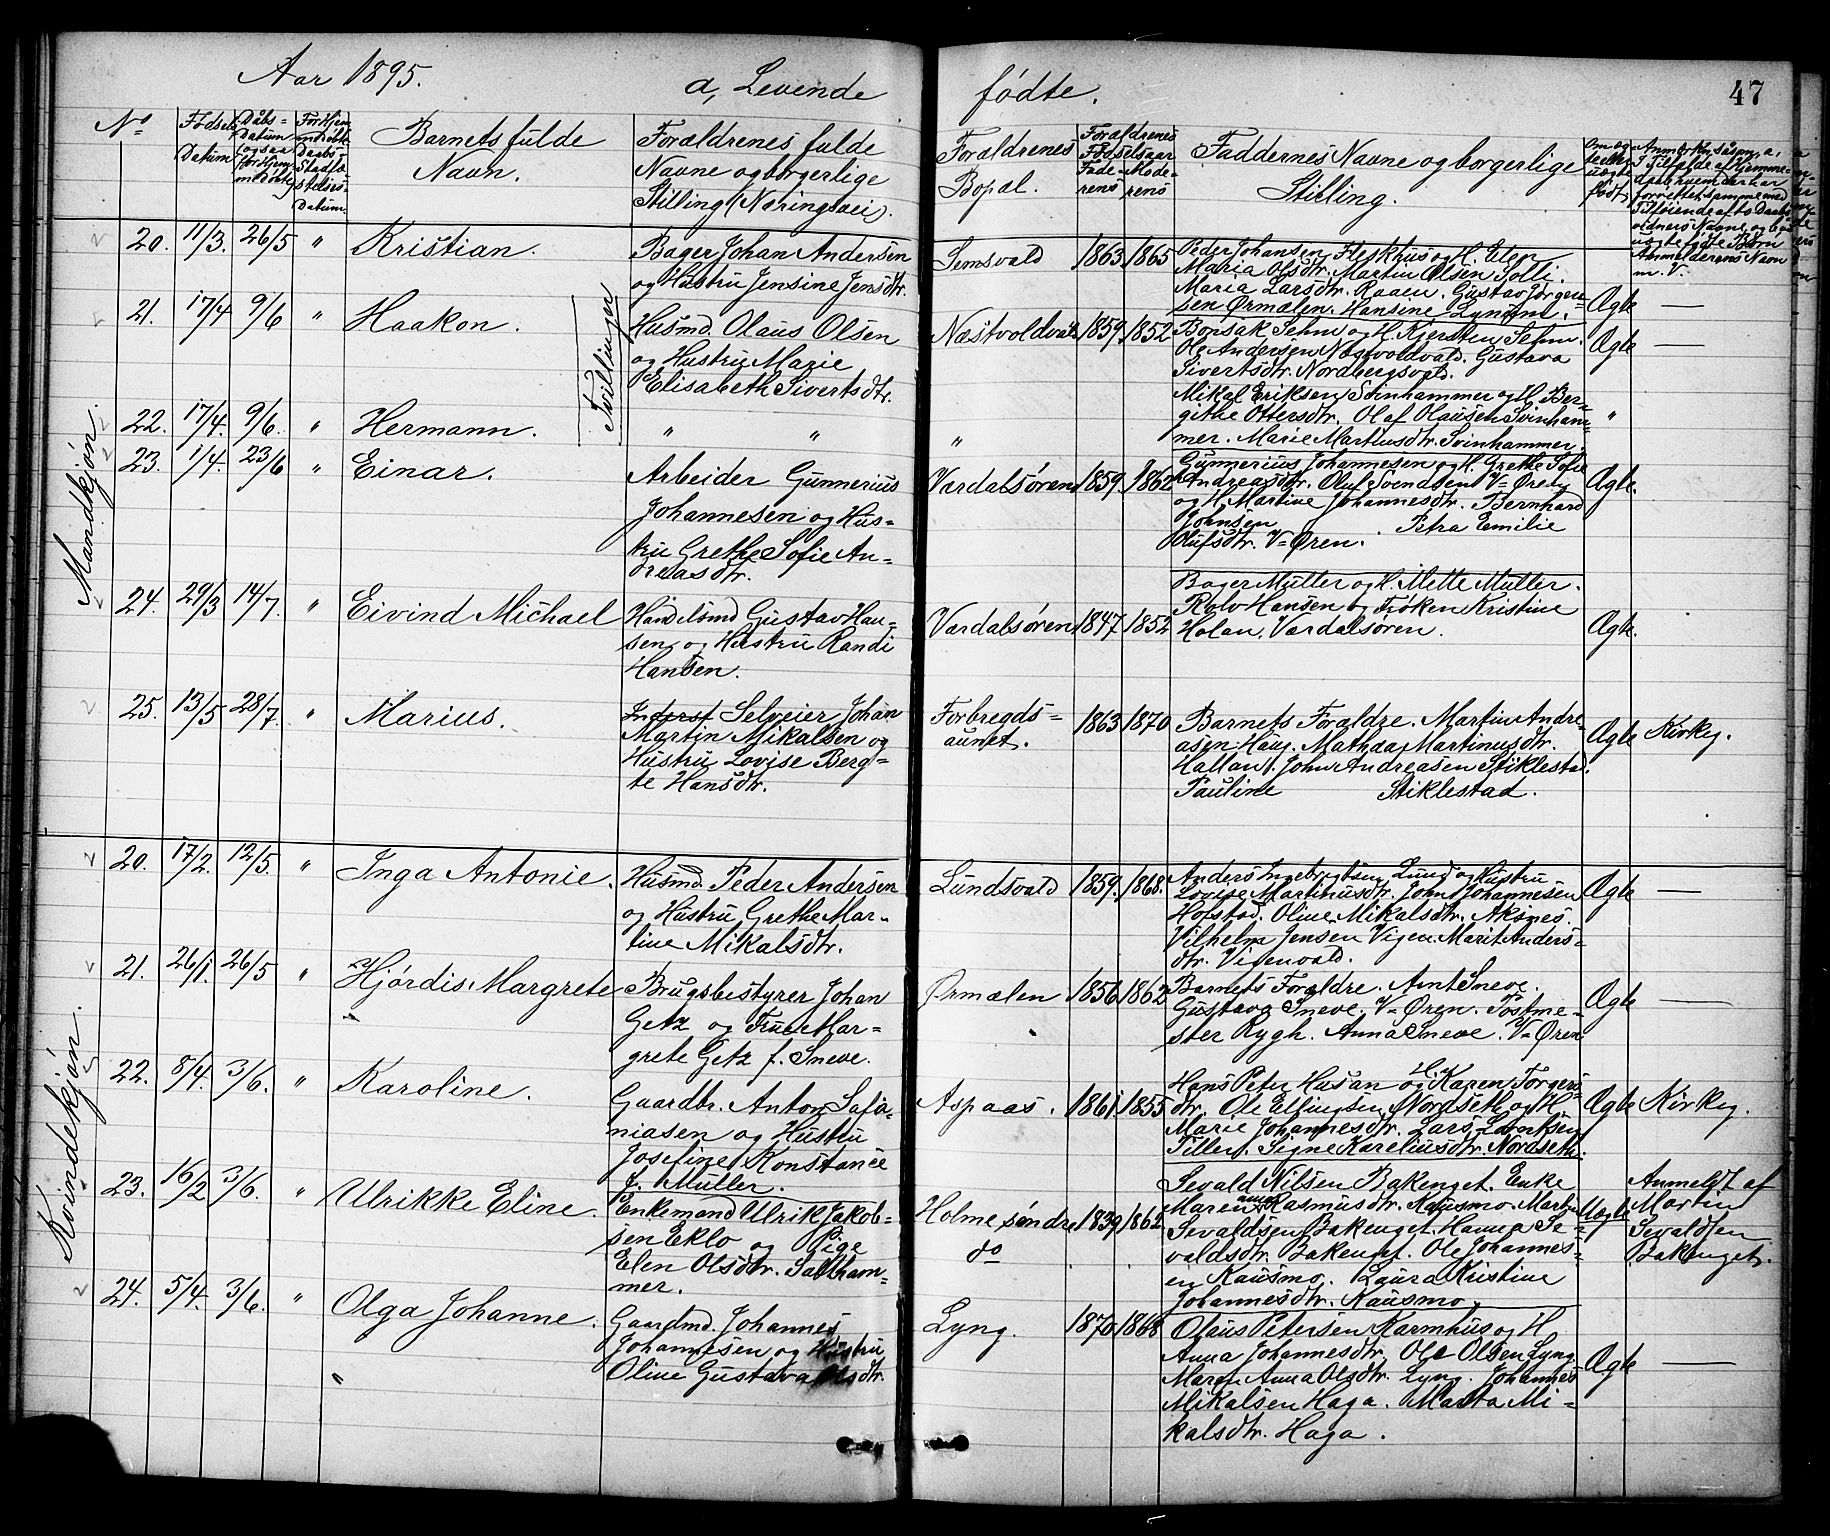 Aar 1895.
a, Levende
fødte.
47
No
Fødsels Datum
Daabs-Datum
Barnets fulde
Navn.
Forældrenes fulde
Navne og borgerlige
Stilling (Næringsvei).
Forældrenes
Bopæl.
Forældrenes
Fødselsaar
Fade-rens
Mode-rens
Faddernes Navne og borgerlige
Stilling.
Mandkjøn.
20. 11/3. 26/5 " Kristian.
Bager Johan Andersen
og Hustru Jensine Jensdtr.
Semsvald 1863 1865
Peder Johansen Fleskhus og H. Elen
Maria Olsdtr. Martin Olsen Solli.
Maria Larsdtr. Raaen. Gustav Jørgen-
sen Ørmælen. Hansine
Ægte —
21. 17/4 9/6 " Haakon.
Tvillinger
Husmd. Olaus Olsen
og Hustru Marie
Elisabeth Sivertsdtr.
Næstvoldvald 1859 1852
Bonsak Sehm og H. Kjersten Sehm.
Ole Andersen Næstvoldvald. Gustava
Sivertsdtr. Nordbergsvald.
Ægte —
22. 17/4. 9/6. " Hermann.
" "
"
Mikal Eriksen Svinhammer og H. Ber-
githe Ottersdtr. Olaf Olausen Svinham-
mer. Marie Martinsdtr. Svinhammer.
"
23. 1/4. 23/6 " Einar.
Arbeider Gunnerius
Johannesen og Hus-
tru Grethe Sofie An-
dreasdtr.
Værdalsøren 1859 1862
Gunnerius Johannesen og H. Grethe Sofie
Andreasdtr. Oluf Svendsen V=Øren
og H. Martine Johannesdtr. Bernhard
Johnsen Petra Emilie
Olufsdtr. V=Øren.
Ægte.
24. 29/3 14/7. " Eivind Michael
Handelsmd Gustav Han-
sen og Hustru Randi
Hansen.
Værdalsøren 1847 1852
Bager Müller og H. Mette Müller.
Rolv Hansen og Frøken Kristine
Holan, Værdalsøren.
Ægte.
25. 13/5 28/7. " Marius.
Inderst Selveier Johan
Martin Mikalsen og
Hustru Lovise Berg-
te Hansdtr.
Forbregds-
aunet. 1863 1870
Barnets Forældre. Martin Andre-
asen Haug. Mathea Martinusdtr.
Hallan. John Andreasen Stiklestad.
Pauline Stiklestad.
Ægte Kirkeg.
Kvindekjøn.
20. 17/2. 12/5. " Inga Antonie.
Husmd. Peder Andersen
og Hustru Grethe Mar-
tine Mikalsdtr.
Lundsvald 1859. 1868.
Anders Ingebrigtsen Lund og Hustru
Lovise Martinusdtr. John Johannesen
Hofstad. Oline Mikalsdtr. Aksnes.
Vilhelm Jensen Vigen. Marit Anders-
dtr. Vigenvald.
Ægte —
21. 26/1. 26/5 " Hjørdis Margrete
Brugsbestyrer Johan
Getz og Frue Mar-
grete Getz f. Sneve.
Ørmælen 1856 1862
Barnets Forældre. Arnt Sneve.
Gustava Sneve. V=Øren. Postme-
ster Rygh. Anna Sneve. V=Øren
Ægte —
22. 8/4. 3/6. " Karoline.
Gaardbr. Anton Safa-
niasen og Hustru
Josefine Konstance
f. Müller.
Aspaas. 1861 1855
Hans Peter Husan og H. Karen Torgers-
dtr. Ole Ellingsen Nordseth og H.
Marie Johannesdtr. Lars Lorntsen
Tiller. Signe Kareliusdtr. Nordseth.
Ægte Kirkeg.
23. 16/2 3/6. " Ulrikke Eline.
Enkemand Ulrik Jakob-
sen Eklo og Pige
Elen Olsdtr. Saltham-
mer.
Holme søndre
do
1839 1862
Sevald Nilsen Bakenget. Enke
Maren Anna Rasmusdtr. Kausmo. Martin
Sevaldsen Bakenget. Hanna Se-
valdsdtr. Bakenget. Ole Johannes-
en Kausmo. Laura Kristine
Johannesdtr. Kausmo.
Uægte
Anmeldt af
Martin
Sevaldsen
Bakenget.
24. 5/4. 3/6. " Olga Johanne.
Gaardmd. Johannes
Johannesen og Hustru
Oline Gustava Olsdtr.
Lyng. 1870 1868
Olaus Petersen Karmhus og H.
Anna Johannesdtr. Ole Olsen Lyng
Maren Anna Olsdtr. Lyng. Johannes
Mikalsen Haga. Marta Mi-
kalsdtr. Haga.
Ægte —